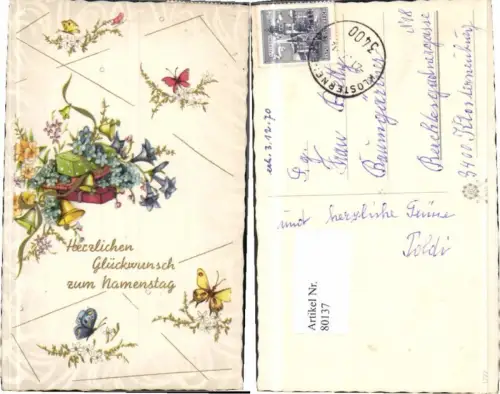 Herzlichen
Glückwunsch
zum Namenstag
3400
KLOSTERNE
erh. 3.12.70
P. g.
Frau
Baumgartner
N18
3400 Klosterneuburg
und herzliche Grüße
Poldi
Artikel Nr.
80137